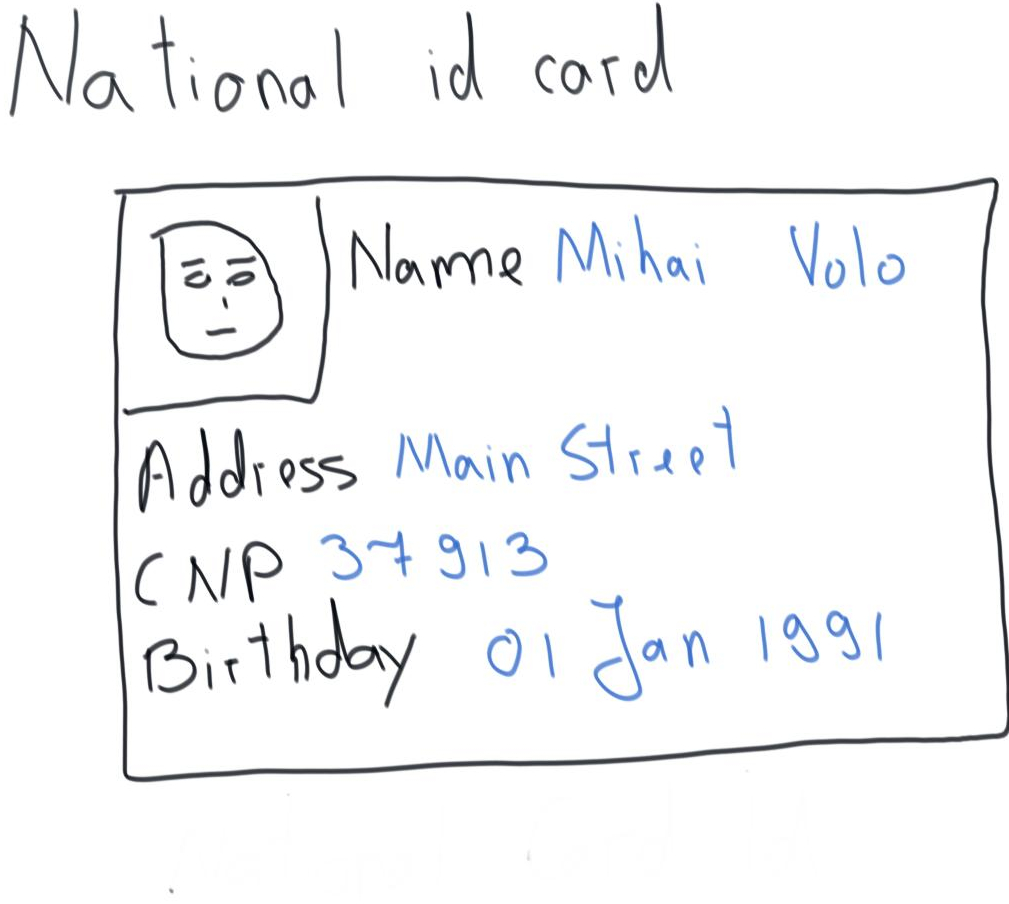 National id card
Name Mihai Volo
Address Main Street
CNP 37913
Birthday 01 Jan 1991